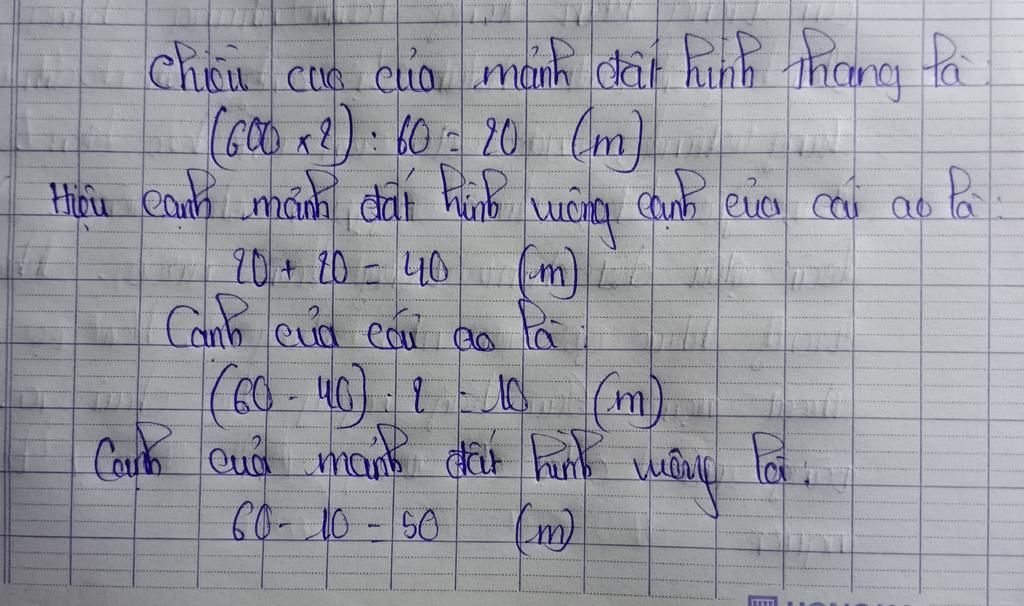 Chiều cao của mảnh đất hình thang là:
(600 x 2) : 60 = 20 (m)
Hiệu cạnh mảnh đất hình vuông cạnh của cái ao là:
20 + 20 = 40 (m)
Cạnh của cái ao là:
(60 - 40) : 2 = 10 (m)
Cạnh của mảnh đất hình vuông là:
60 - 10 = 50 (m)